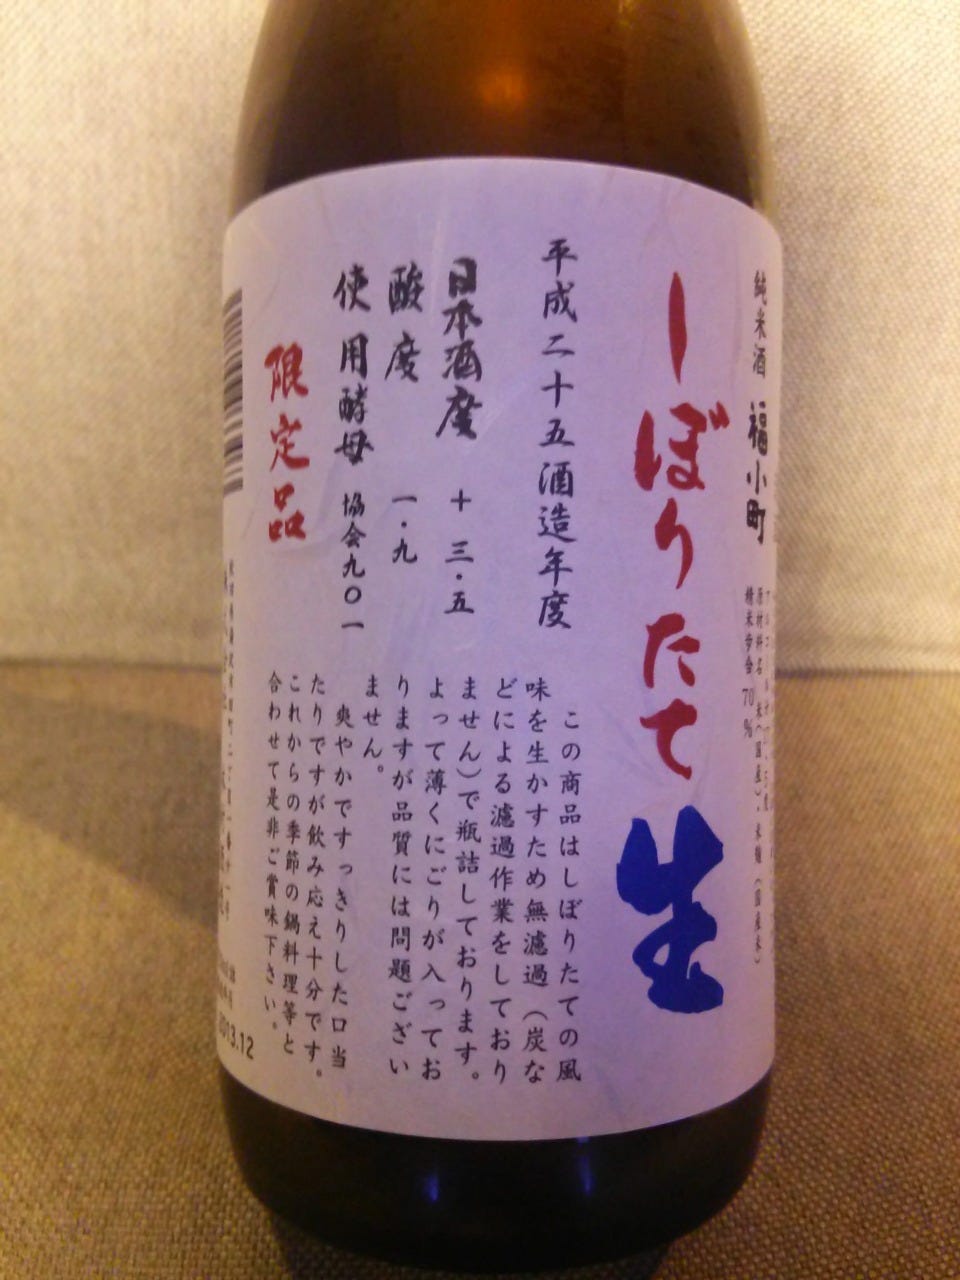 純米酒 福小町
原材料名 米(国産)・米麹(国産米)
精米歩合 70%
しぼりたて生
平成二十五酒造年度
日本酒度 +三・五
酸度 一・九
使用酵母 協会九〇一
限定品
この商品はしぼりたての風
味を生かすため無濾過(炭な
どによる濾過作業をしており
ません)で瓶詰しております。
よって薄くにごりが入ってお
りますが品質には問題ござい
ません。
爽やかですっきりした口当
たりですが飲み応え十分です。
これからの季節の鍋料理等と
合わせて是非ご賞味下さい。
2013.12